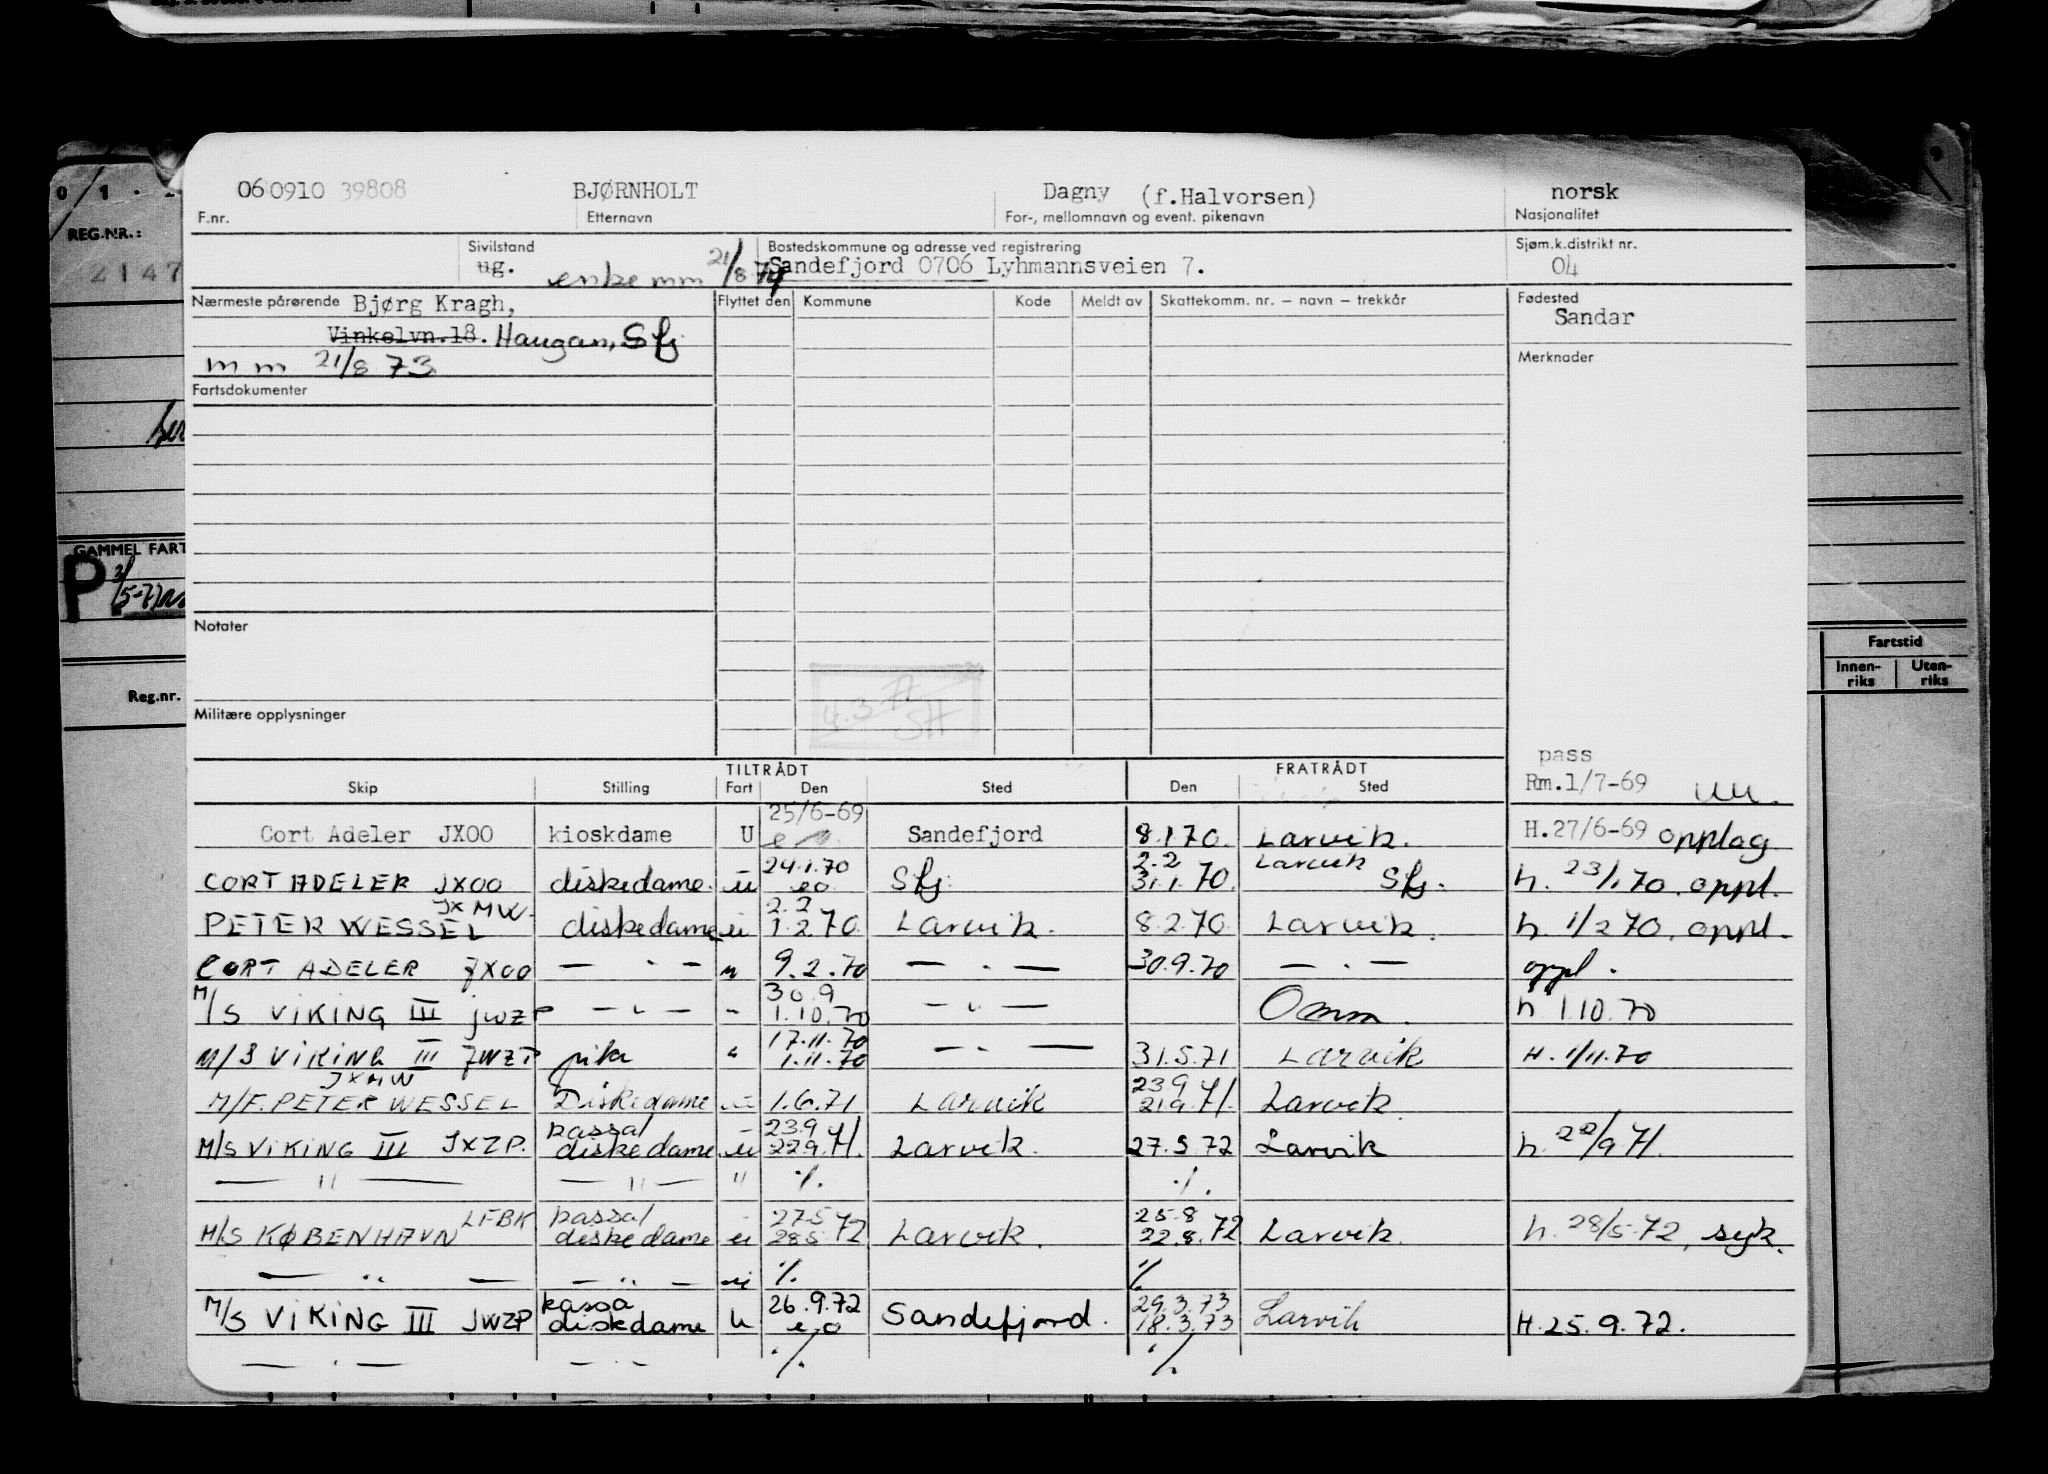 060910 39808 BJØRNHOLT Dagny (f.Halvorsen) norsk
F.nr. Etternavn For-, mellomnavn og event. pikenavn Nasjonalitet
Sivilstand Bostedskommune og adresse ved registrering Sjøm.k.distrikt nr.
ug. enke mm 21/8 74 Sandefjord 0706 Lyhmannsveien 7. 04
Nærmeste pårørende Bjørg Kragh, Flyttet den Kommune Kode Meldt av Skattekomm. nr. – navn – trekkår Fødested
Sandar
Vinkelvn.18. Haugan, Sfj
mm 21/8 73
Merknader
Fartsdokumenter
Notater
4.3.77
SH
Militære opplysninger
pass
Rm.1/7-69
TILTRÅDT FRATRÅDT
Skip Stilling Fart Den Sted Den Sted
25/6-69
Cort Adeler JXOO kioskdame U Sandefjord 8.1 70. Larvik. H.27/6-69 opplag
24.1.70 2.2 Larvik
CORT ADELER JXOO diskedame. u eo Sfj 31.1.70. Sfj. h. 23/1.70. oppl.
JXMW. 2.2
PETER WESSEL diskedame u 1.2 70. Larvik. 8.2.70. Larvik. h 1/2 70. oppl.
CORT ADELER JXOO — . — " 9.2.70 — . — 30.9.70 — . — oppl.
30.9
M/S VIKING III JWZP — " — " 1.10.70 — " — Omm. h 1.10.70
17.11.70
M/S VIKING III JWZP pike " 1.11.70 — " — 31.5.71 Larvik H. 1/11.70
JXMW 23.9
M/F. PETER WESSEL Diskedame u 1.6.71 Larvik 21.9.71. Larvik.
kassa/ 23.9
M/S VIKING III JXZP. diskedame u 22.9.71. Larvik. 27.5.72 Larvik h. 22/9 71.
— " — — " — " ./. ./.
LFBK kassa/ 27.5 25.8
M/S KØBENHAVN diskedame u 28.5.72 Larvik. 22.8.72 Larvik. h. 28/5-72, syk.
— " — — " — u ./. ./.
kassa 26.9.72 29.3.73
M/S VIKING III JWZP diskedame u eo Sandefjord. 18.3.73 Larvik H.25.9.72.
— . — — . — ./. ./.
REG.NR.:
2147
GAMMEL FART
P
Reg.nr.
Fartstid
Innen-riks Uten-riks